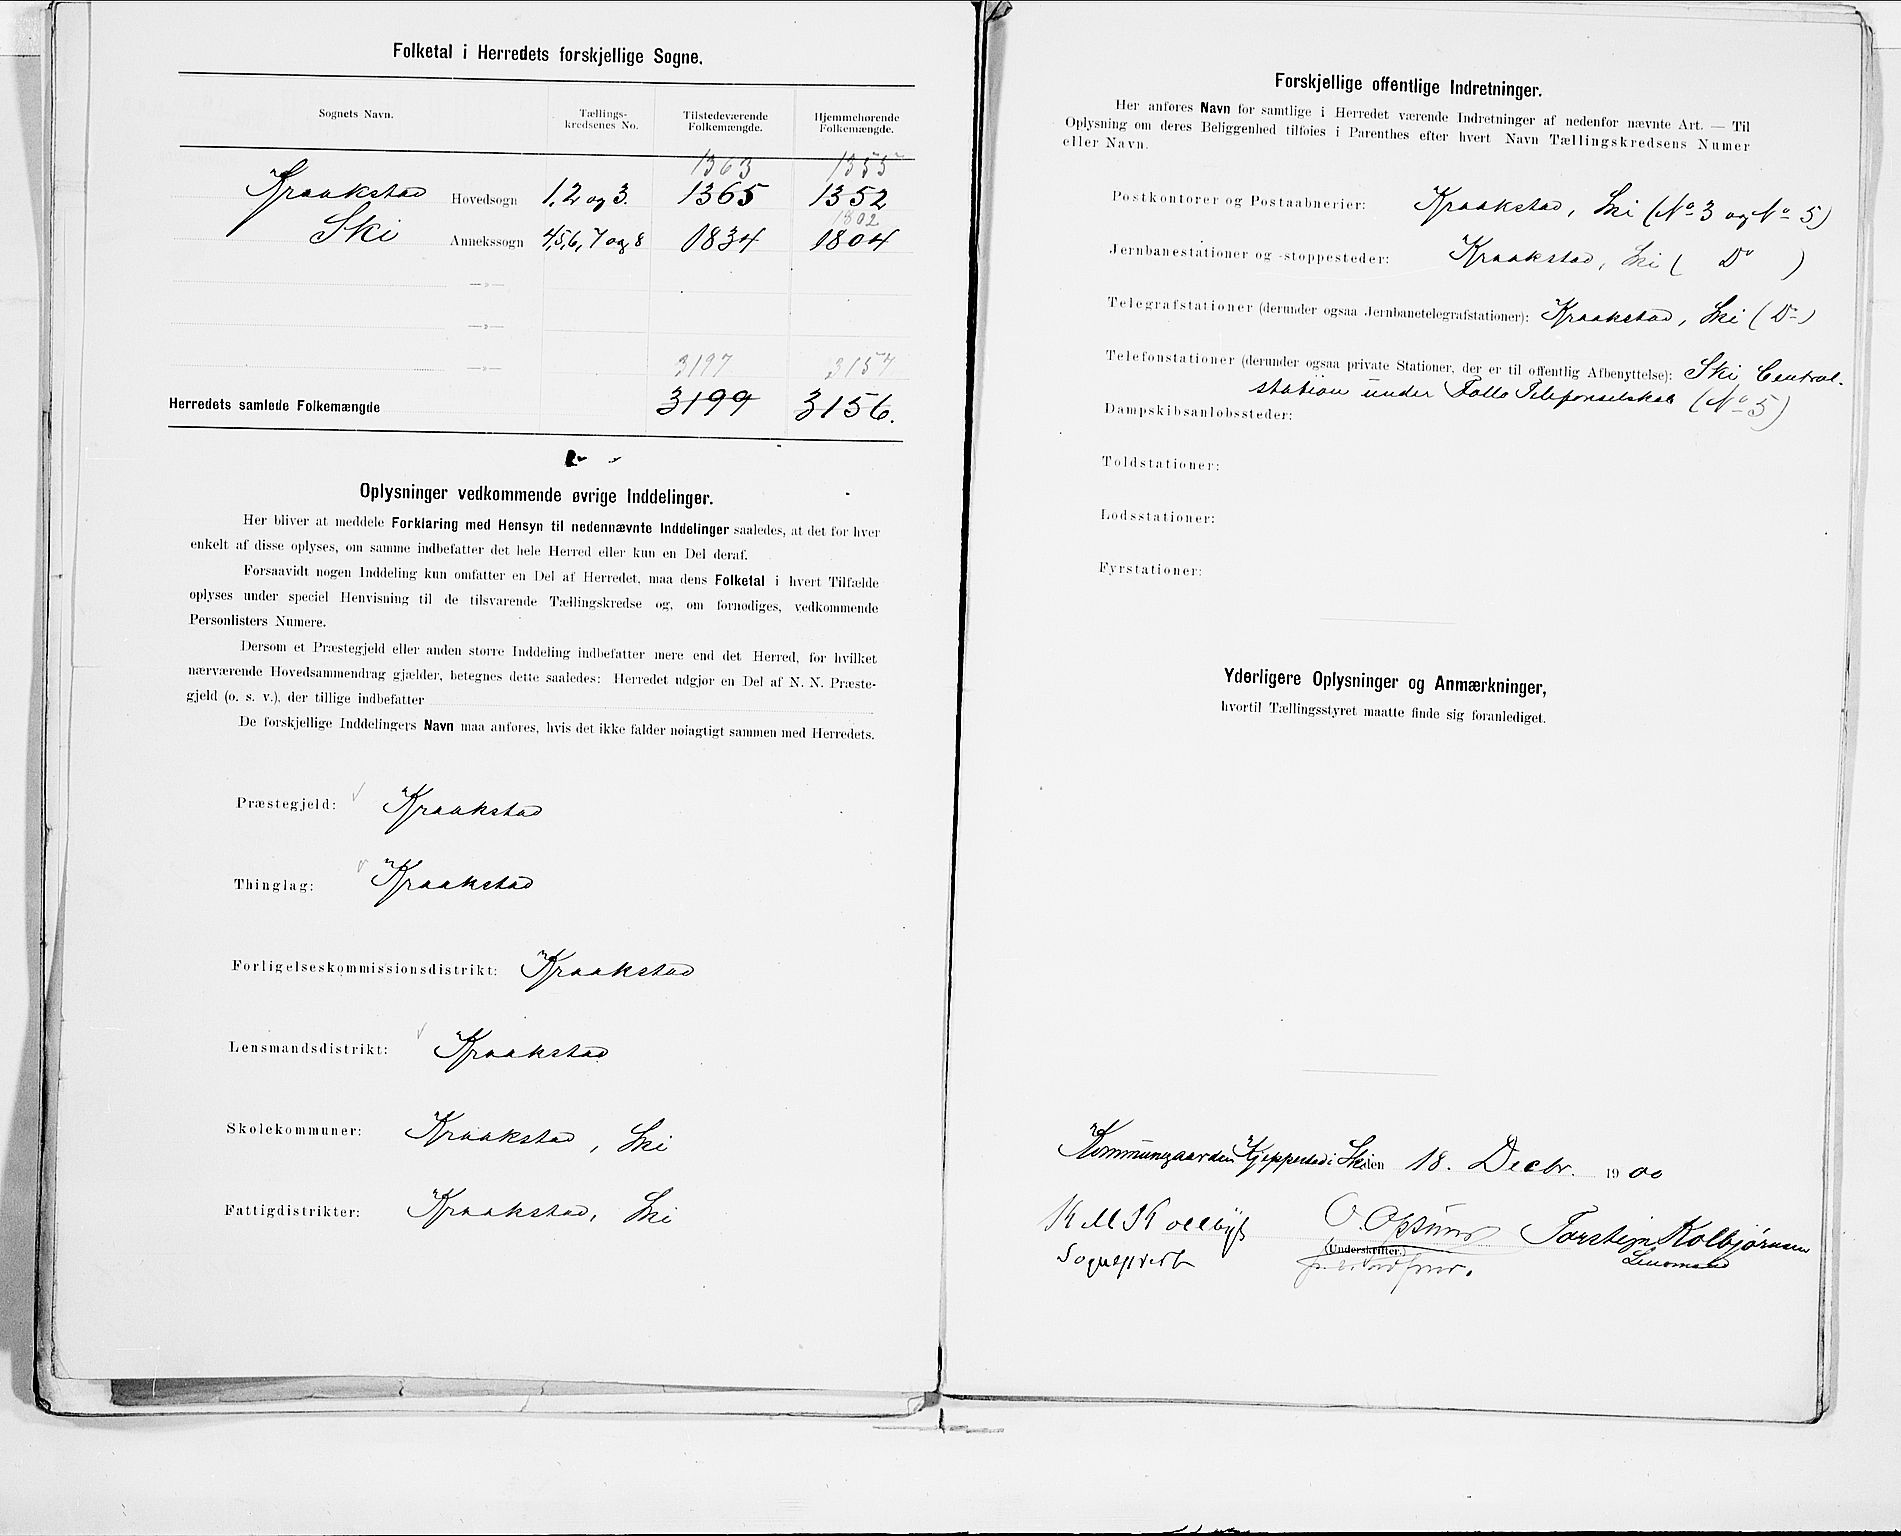 Folketal i Herredets forskjellige Sogne.
Sognets Navn. Tællings-kredsenes No. Tilstedeværende Folkemængde. Hjemmehørende Folkemængde.
1363 1355
Kraakstad Hovedsogn 1, 2 og 3. 1365 1352
1802
Ski Annekssogn 4, 5, 6, 7 og 8 1834 1804
—»—
—»—
3197 3157
—»—
Herredets samlede Folkemængde 3199 3156.
Oplysninger vedkommende øvrige Inddelinger.
Her bliver at meddele Forklaring med Hensyn til nedennævnte Inddelinger saaledes, at det for hver
enkelt af disse oplyses, om samme indbefatter det hele Herred eller kun en Del deraf.
Forsaavidt nogen Inddeling kun omfatter en Del af Herredet, maa dens Folketal i hvert Tilfælde
oplyses under speciel Henvisning til de tilsvarende Tællingskredse og, om fornødiges, vedkommende
Personlisters Numere.
Dersom et Præstegjeld eller anden større Inddeling indbefatter mere end det Herred, for hvilket
nærværende Hovedsammendrag gjælder, betegnes dette saaledes: Herredet udgjør en Del af N. N. Præste-
gjeld (o. s. v.), der tillige indbefatter
De forskjellige Inddelingers Navn maa anføres, hvis det ikke falder nøiagtigt sammen med Herredets.
Præstegjeld: Kraakstad
Thinglag: Kraakstad
Forligelseskommissionsdistrikt: Kraakstad
Lensmandsdistrikt: Kraakstad
Skolekommuner: Kraakstad, Ski
Fattigdistrikter: Kraakstad, Ski
Forskjellige offentlige Indretninger.
Her anføres Navn for samtlige i Herredet værende Indretninger af nedenfor nævnte Art. — Til
Oplysning om deres Beliggenhed tilføies i Parenthes efter hvert Navn Tællingskredsens Numer
eller Navn.
Postkontorer og Postaabnerier: Kraakstad, Ski (No 3 og No 5)
Jernbanestationer og -stoppesteder: Kraakstad, Ski ( Do )
Telegrafstationer (derunder ogsaa Jernbanetelegrafstationer): Kraakstad, Ski (Do)
Telefonstationer (derunder ogsaa private Stationer, der er til offentlig Afbenyttelse): Ski Central-
station under Follo Telefonselskab (No 5)
Dampskibsanløbssteder:
Toldstationer:
Lodsstationer:
Fyrstationer:
Yderligere Oplysninger og Anmærkninger,
hvortil Tællingsstyret maatte finde sig foranlediget.
Kommunegaarden Kjeppestad i Ski den 18. Decbr. 1900
K M Kollbÿe O. Opsund Torstein Kolbjørnsen
(Underskrifter.)
Sogneprest Lensmand